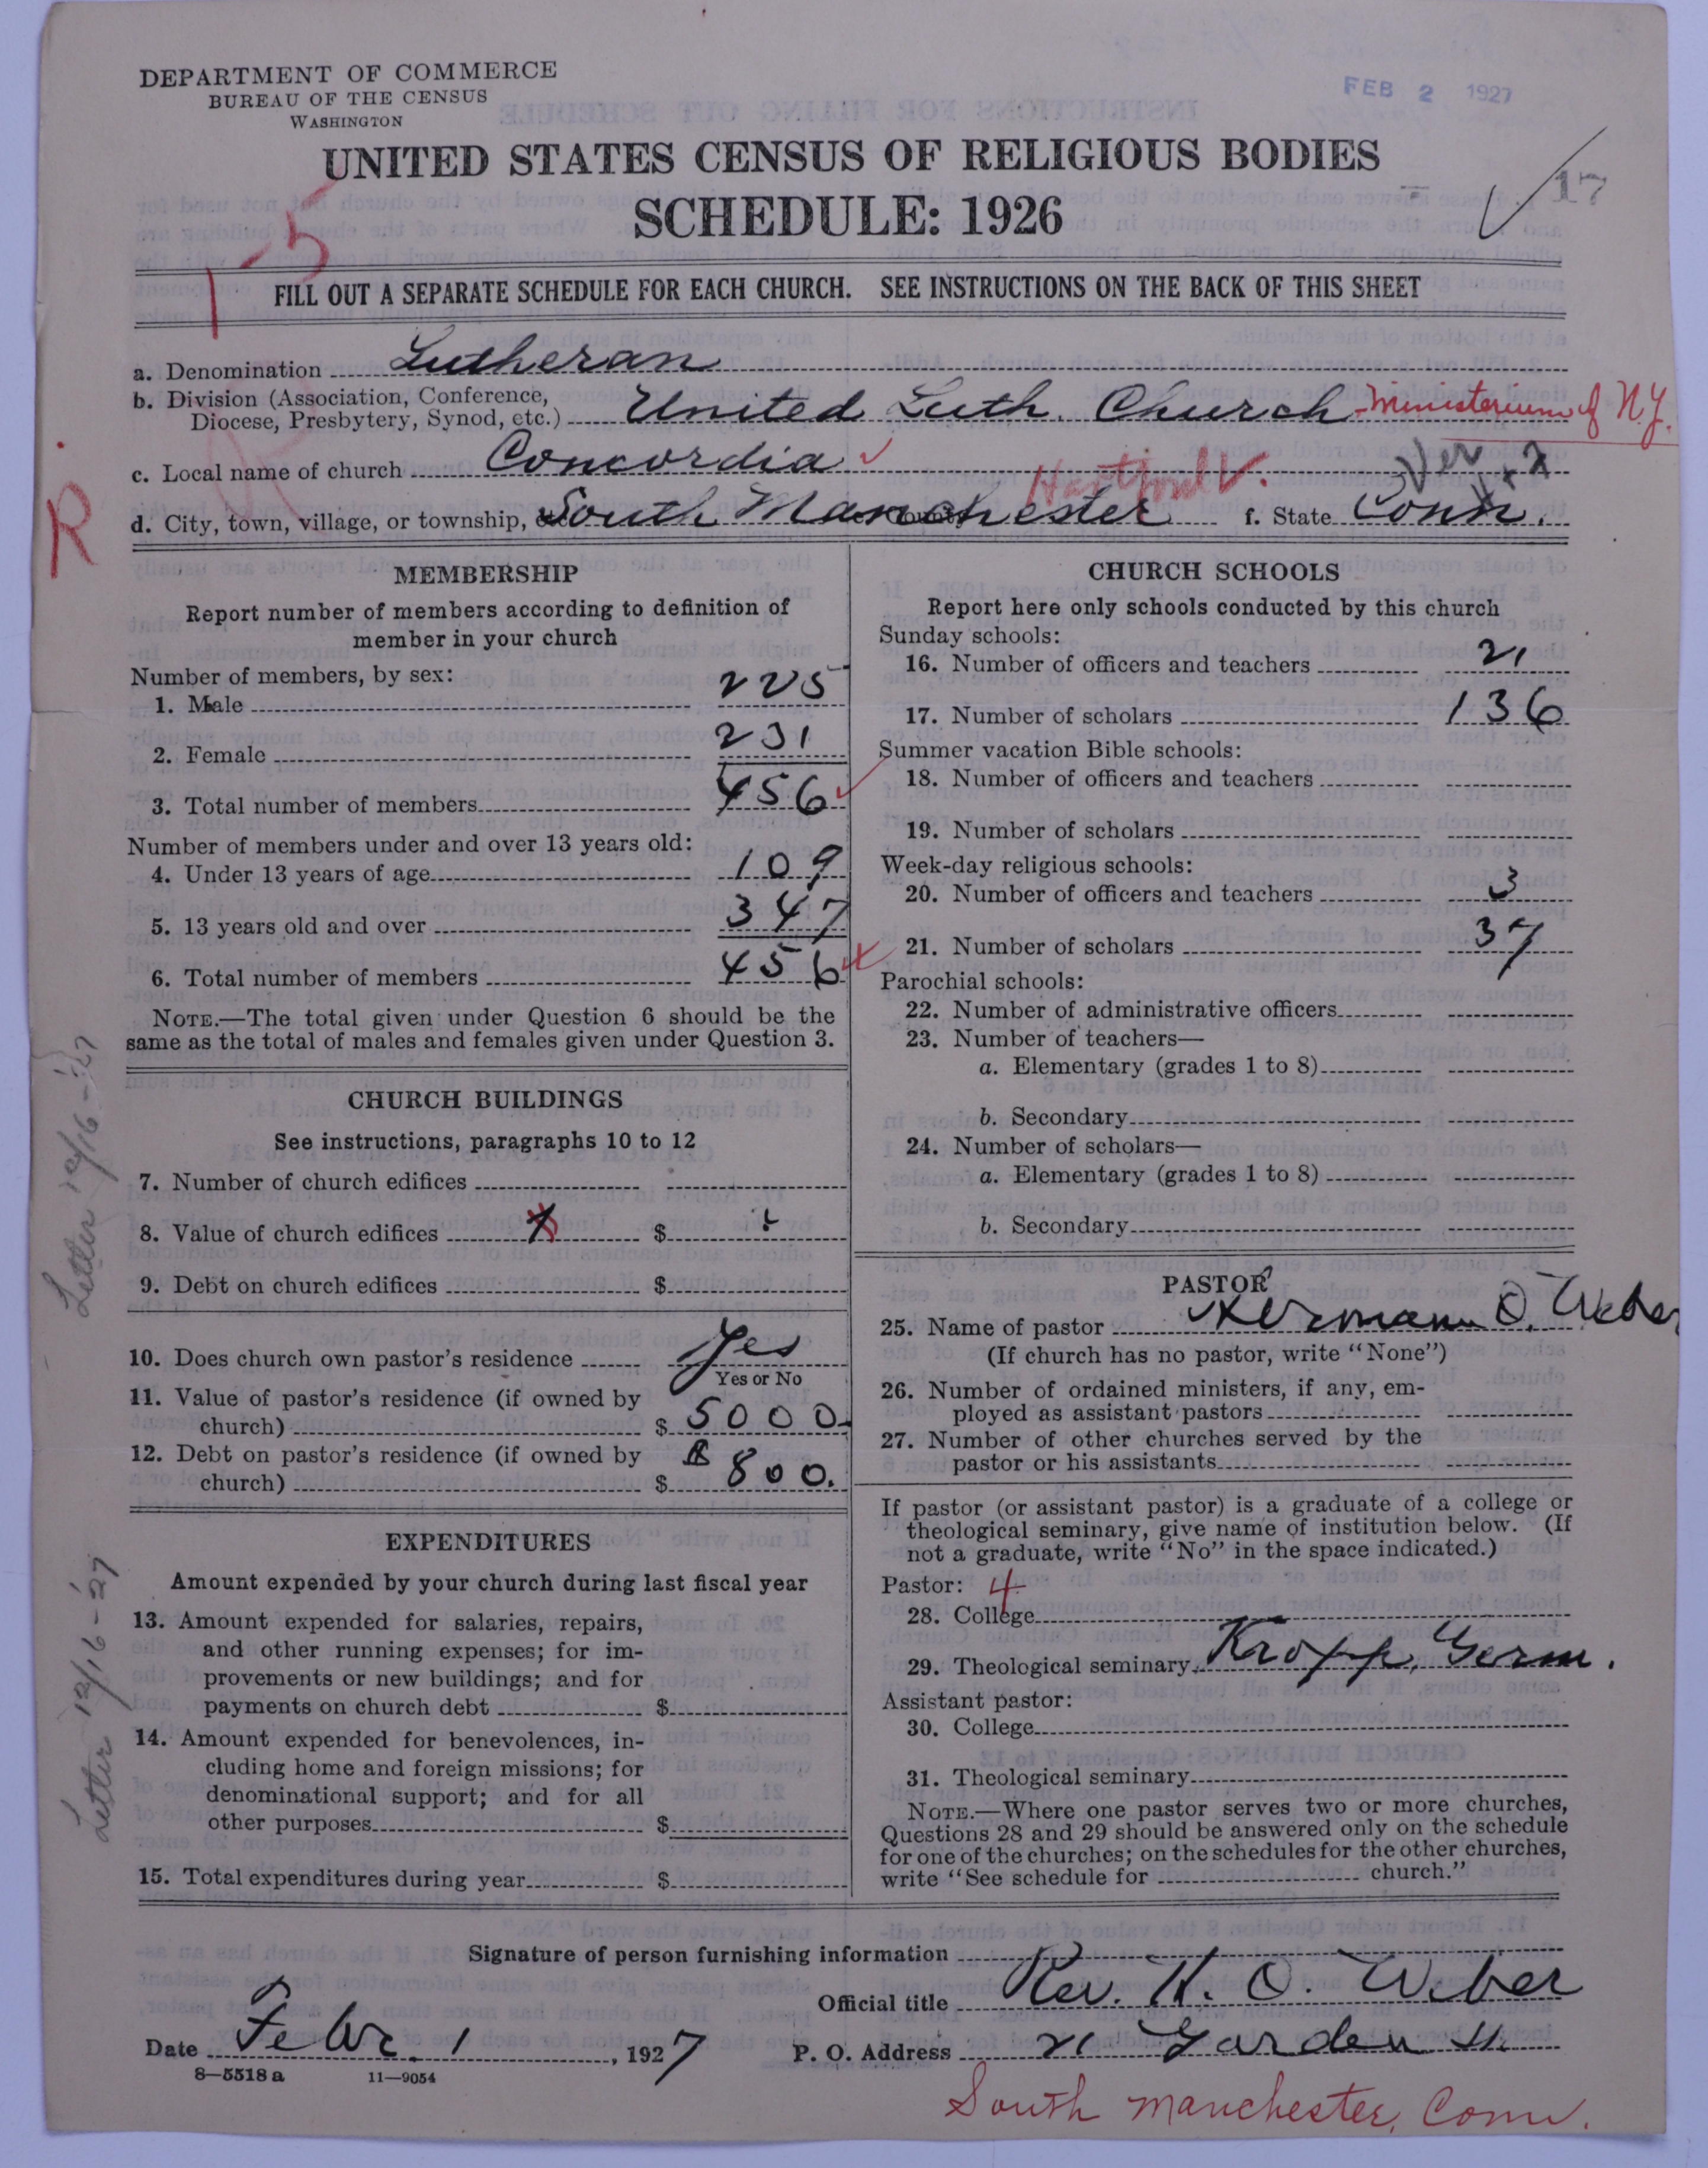 DEPARTMENT OF COMMERCE
BUREAU OF THE CENSUS
WASHINGTON
FEB 2 1927
UNITED STATES CENSUS OF RELIGIOUS BODIES
SCHEDULE: 1926
17
15
FILL OUT A SEPARATE SCHEDULE FOR EACH CHURCH. SEE INSTRUCTIONS ON THE BACK OF THIS SHEET
a. Denomination Lutheran
b. Division (Association, Conference,
Diocese, Presbytery, Synod, etc.) United Luth. Church - Ministerium of N.Y.
c. Local name of church Concordia
R
Hartford V. Ver
d. City, town, village, or township, South Manchester f. State Conn.
MEMBERSHIP
Report number of members according to definition of
member in your church
Number of members, by sex:
1. Male 225
2. Female 231
3. Total number of members 456
Number of members under and over 13 years old:
4. Under 13 years of age 109
5. 13 years old and over 347
6. Total number of members 456
NOTE.—The total given under Question 6 should be the
same as the total of males and females given under Question 3.
CHURCH BUILDINGS
See instructions, paragraphs 10 to 12
7. Number of church edifices
8. Value of church edifices $
9. Debt on church edifices $
10. Does church own pastor's residence Yes
Yes or No
11. Value of pastor's residence (if owned by
church) $ 5000.
12. Debt on pastor's residence (if owned by
church) $ 800.
EXPENDITURES
Amount expended by your church during last fiscal year
13. Amount expended for salaries, repairs,
and other running expenses; for im-
provements or new buildings; and for
payments on church debt $
14. Amount expended for benevolences, in-
cluding home and foreign missions; for
denominational support; and for all
other purposes $
15. Total expenditures during year $
Letter 12/16-'27
Letter 12/16-'27
CHURCH SCHOOLS
Report here only schools conducted by this church
Sunday schools:
16. Number of officers and teachers 21
17. Number of scholars 136
Summer vacation Bible schools:
18. Number of officers and teachers
19. Number of scholars
Week-day religious schools:
20. Number of officers and teachers 3
21. Number of scholars 37
Parochial schools:
22. Number of administrative officers
23. Number of teachers—
a. Elementary (grades 1 to 8)
b. Secondary
24. Number of scholars—
a. Elementary (grades 1 to 8)
b. Secondary
PASTOR
25. Name of pastor Hermann O. Weber
(If church has no pastor, write "None")
26. Number of ordained ministers, if any, em-
ployed as assistant pastors
27. Number of other churches served by the
pastor or his assistants
If pastor (or assistant pastor) is a graduate of a college or
theological seminary, give name of institution below. (If
not a graduate, write "No" in the space indicated.)
Pastor: 4
28. College
29. Theological seminary Kropp, Germ.
Assistant pastor:
30. College
31. Theological seminary
NOTE.—Where one pastor serves two or more churches,
Questions 28 and 29 should be answered only on the schedule
for one of the churches; on the schedules for the other churches,
write "See schedule for church."
Signature of person furnishing information
Official title Rev. H. O. Weber
Date Febr. 1, 1927
P. O. Address 21 Garden St.
8—5518 a 11—9054
South Manchester, Conn.